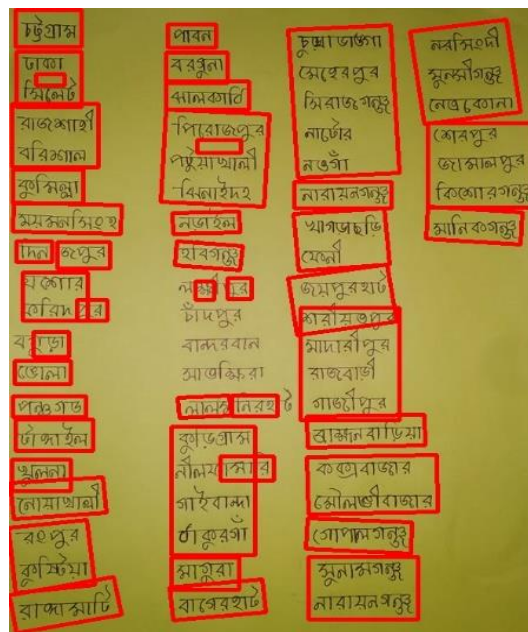 চট্টগ্রাম
ঢাকা
সিলেট
রাজশাহী
বরিশাল
কুমিল্লা
ময়মনসিংহ
দিনাজপুর
যশোর
ফরিদপুর
বগুড়া
ভোলা
পঞ্চগড়
টাঙ্গাইল
খুলনা
নোয়াখালী
রংপুর
কুষ্টিয়া
রাঙ্গামাটি
পাবনা
বরগুনা
ঝালকাঠি
পিরোজপুর
পটুয়াখালী
ঝিনাইদহ
নড়াইল
হবিগঞ্জ
লক্ষ্মীপুর
চাঁদপুর
বান্দরবান
সাতক্ষিরা
লালমনিরহাট
কুড়িগ্রাম
নীলফামারি
গাইবান্দা
ঠাকুরগাঁ
মাগুরা
বাগেরহাট
চুয়াডাঙ্গা
মেহেরপুর
সিরাজগঞ্জ
নাটোর
নওগাঁ
নারায়নগঞ্জ
খাগড়াছড়ি
ফেনী
জয়পুরহাট
শরীয়তপুর
মাদারীপুর
রাজবাড়ী
গাজীপুর
ব্রাহ্মনবাড়িয়া
কক্সবাজার
মৌলভীবাজার
গোপালগঞ্জ
সুনামগঞ্জ
নারায়নগঞ্জ
নরসিংদী
মুন্সীগঞ্জ
নেত্রকোনা
শেরপুর
জামালপুর
কিশোরগঞ্জ
মানিকগঞ্জ